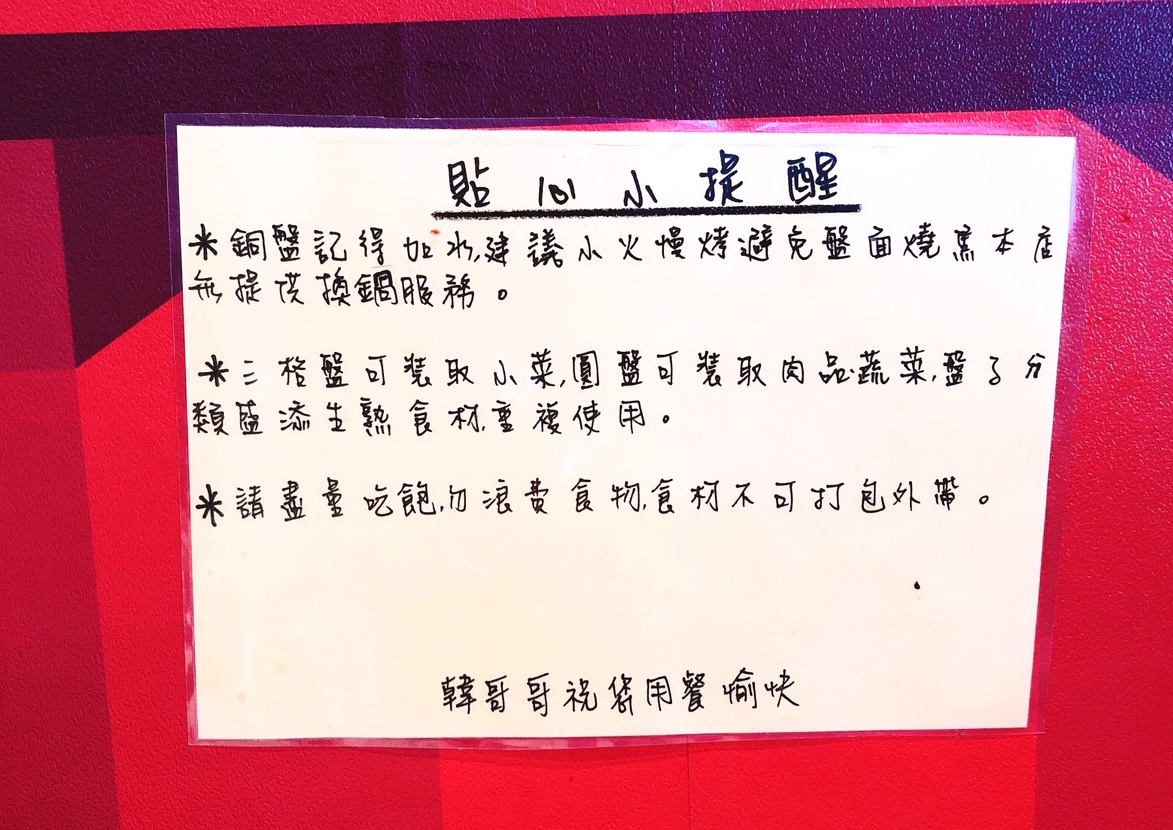 貼心小提醒
*銅盤記得加水,建議小火慢烤避免盤面燒焦本店
無提供換鍋服務。
*三格盤可裝取小菜,圓盤可裝取肉品蔬菜,盤子分
類盛添生熟食材,重複使用。
*請盡量吃飽,勿浪費食物,食材不可打包外帶。
韓哥哥祝您用餐愉快